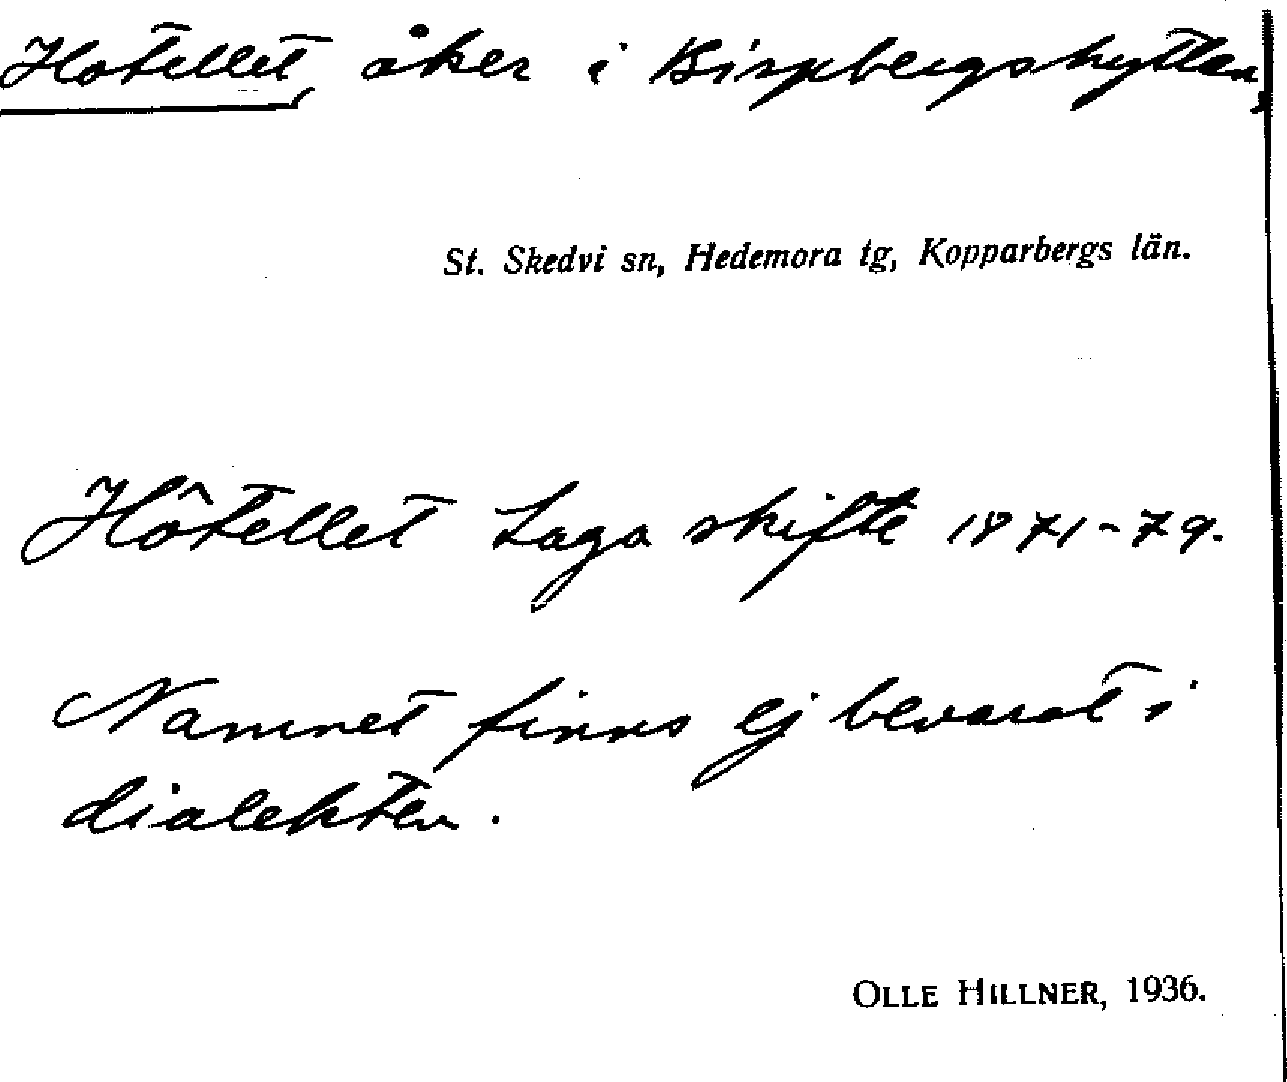 Hotellet, åker i Bispbergshyttan,
St. Skedvi sn, Hedemora tg, Kopparbergs län.
Hôtellet Laga skifte 1871-79.
Namnet finns ej bevarat i
dialekten.
OLLE HILLNER, 1936.